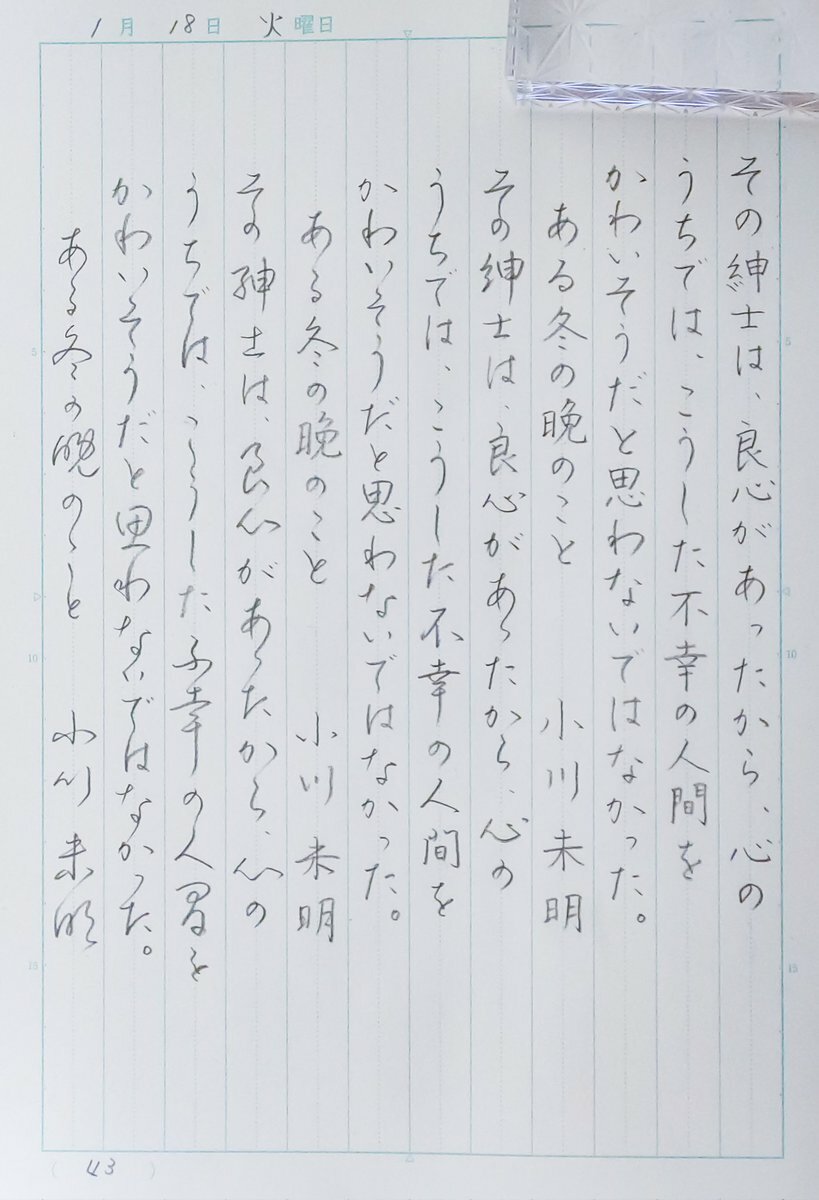 1月 18日 火曜日
その紳士は、良心があったから、心の
うちでは、こうした不幸の人間を
かわいそうだと思わないではなかった。
ある冬の晩のこと 小川未明
その紳士は、良心があったから、心の
うちでは、こうした不幸の人間を
かわいそうだと思わないではなかった。
ある冬の晩のこと 小川未明
その紳士は、良心があったから、心の
うちでは、こうした不幸の人間を
かわいそうだと思わないではなかった。
ある冬の晩のこと 小川未明
5
10
15
5
10
15
(43)